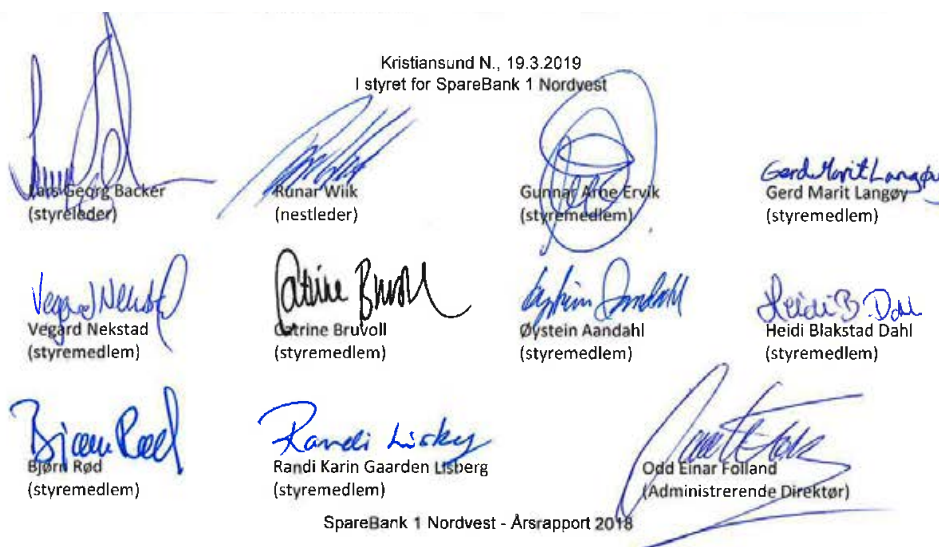 Kristiansund N., 19.3.2019
I styret for SpareBank 1 Nordvest
Lars Georg Backer
(styreleder)
Runar Wiik
(nestleder)
Gunnar Arne Ervik
(styremedlem)
Gerd Marit Langøy
Gerd Marit Langøy
(styremedlem)
Vegard Nekstad
Vegard Nekstad
(styremedlem)
Catrine Bruvoll
Catrine Bruvoll
(styremedlem)
Øystein Aandahl
Øystein Aandahl
(styremedlem)
Heidi B. Dahl
Heidi Blakstad Dahl
(styremedlem)
Bjørn Rød
Bjørn Rød
(styremedlem)
Randi Lisberg
Randi Karin Gaarden Lisberg
(styremedlem)
Odd Einar Folland
(Administrerende Direktør)
SpareBank 1 Nordvest - Årsrapport 2018